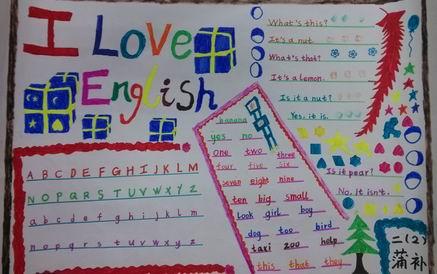 I LOVE
English
What's this?
It's a nut.
What's that?
It's a lemon.
Is it a nut?
Yes, it is.
Is it pear?
No, It isn't.
A B C D E F G H I J K L M
N O P Q R S T U V W X Y Z
a b c d e f g h i j k l m
n o p q r s t u v w x y z
banana
yes no
one two three
four five six
seven eight nine
ten big small
Look girl boy
dog too bird
taxi zoo help
this that they
二(2)
蒲补